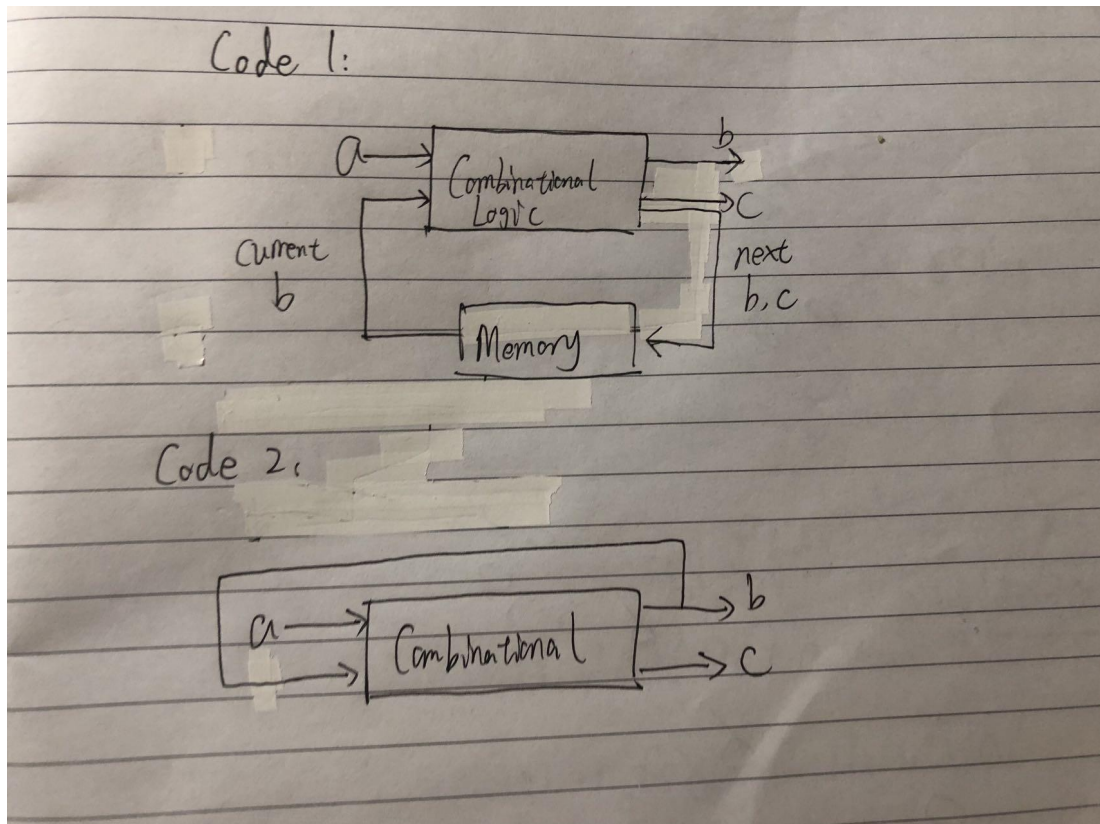 Code 1:
a
Combinational
Logic
b
c
current
b
next
b, c
Memory
Code 2:
a
Combinational
b
c